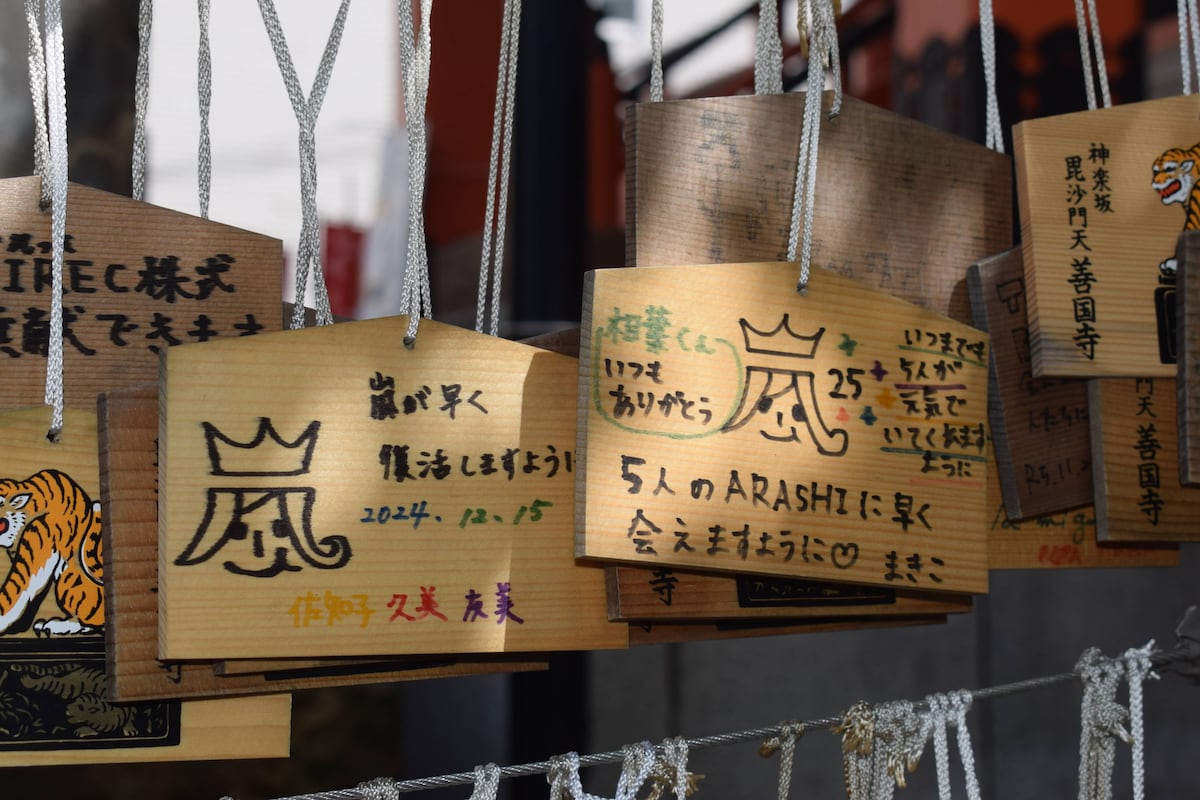 IREC株式
献できます
嵐が早く
復活しますように
2024.12.15
佐知子 久美 友美
相葉くん
いつも
ありがとう
25
いつまでも
5人が
元気で
いてくれます
ように
5人のARASHIに早く
会えますように♡
まきこ
神楽坂
毘沙門天 善国寺
門天 善国寺
人たちに
R5.11.
寺